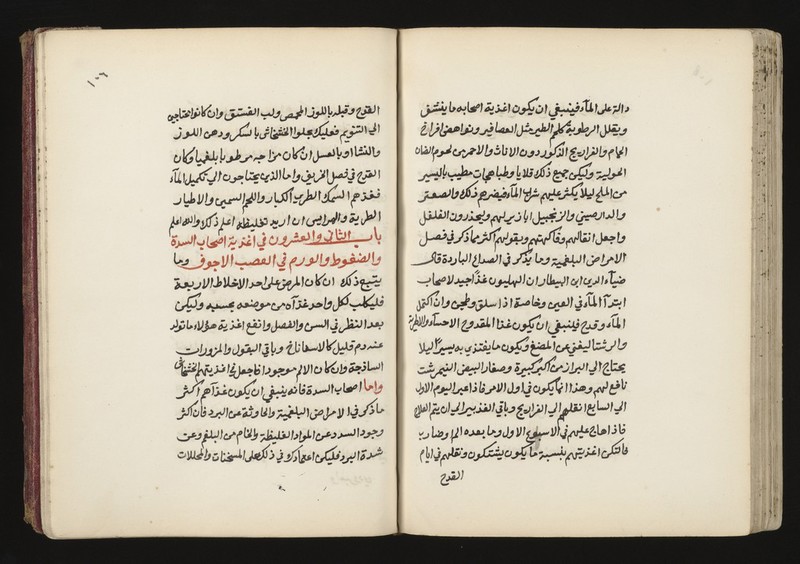 دالة على المآء فينبغي ان يكون اغذية اصحابه ما ينشف
ويقلل الرطوبة كلحم الطير مثل العصافير ونواهض افراخ
الحمام والفراريج الذكور دون الاناث والاحمر من لحوم الضان
الحولية وليكن جميع ذلك قلايا وطباهجات مطيب باليسير
من الملح ليلا يكثر عليهم شرب المآء فيضرهم ذلك والصعتر
والدارصيني والزنجبيل ابازير لهم ويحذرون الفلفل
واجعل انقالهم وفاكهتهم وبقولهم اكثر مما ذكر في فصل
الامراض البلغمية وما يذكر في الصداع الباردة قال
ضيآء الدين ابن البيطار ان الهليون غذآ جيد لاصحاب
ابتدآ المآء في العين وخاصة اذا سلق وطجن وان اكتمل
المآء وقدح فينبغي ان يكون غذا المقدوح الاحسآء والاطرية
والرشتا ليغني عن المضغ ويكون ما يغتذي به يسيرًا ليلا
يحتاج الى البراز من اكبر كبيرة وصفار البيض النيمرشت
نافع لهم وهذا انما يكون في اول الامر فاذا عبر اليوم الاول
الى السابع انقلهم الى الفراريج وباقي التدبير الى ان يتم العلاج
فاذا هاج عليهم في الاسبوع الاول وما بعده الم او ضارب
فالتكن اغذيتهم بنسبة ما يكون يشتكون ونقلهم في ايام
القدح
١٠٦
القدح وقبله باللوز المحمص ولب الفستق وان كانوا محتاجين
الى التنويم فعليك بحلوا الخشخاش بالسكر ودهن اللوز
والنشا او بالعسل ان كان مزاجه مرطوبا بلغميا وكان
القدح في فصل الخريف واما الذين يحتاجون الى تكميل المآء
فغذهم السمك الطري الكبار واللحم السمين والاطيار
الطرية والهرايس ان اريد تغليظه اعلم ذلك والله اعلم
باب الثاني والعشرون في اغذية اصحاب السدة
والضغوط والورم في العصب الاجوف وما
يتبع ذلك ان كان المرض على احد الاخلاط الاربعة
فليكتب لكل واحد غذآه من موضعه بحسبه وليكن
بعد النظر في السن والفصل وانفع اغذية هؤلاء ما تولد
عنه دم قليل كالاسفاناخ وباقي البقول والمزورات
الساذجة وان كان الالم موجودا فاجعل في اغذيتهم الخشخاش
واما اصحاب السدة فانه ينبغي ان يكون غذآهم اكثر
ما ذكر في الامراض البلغمية والحادثة عن البرد فان اكثر
وجود السدد عن المواد الغليظة والخام من البلغم وعن
شدة البرد فليكن اعتمادك في ذلك على المسخنات والمحللات